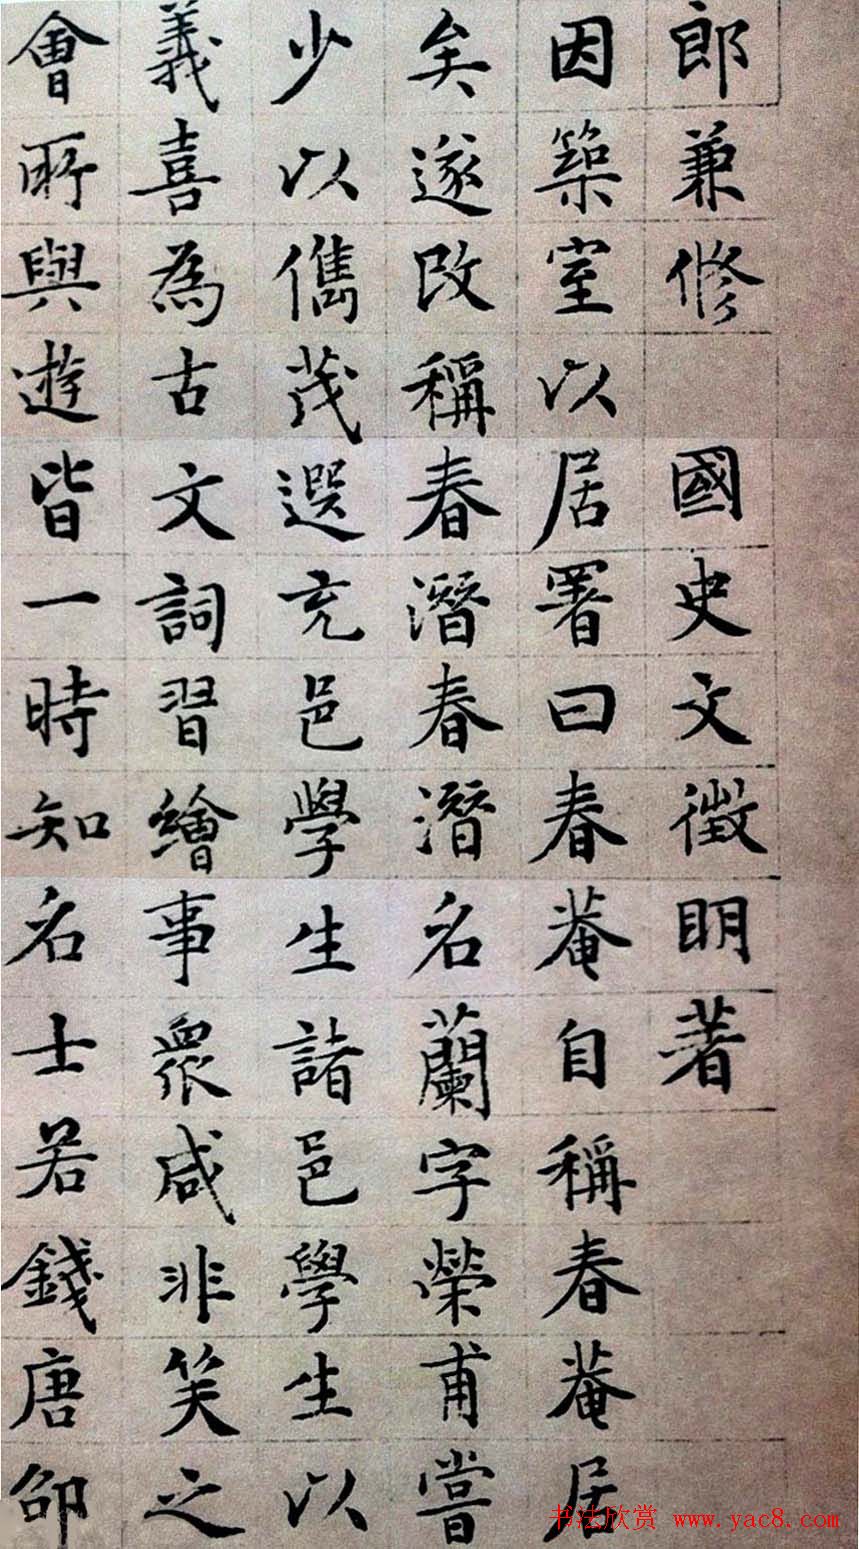 郎兼修 國史文徵明著
因築室以居署曰春菴自稱春菴居
矣遂改稱春潛春潛名蘭字榮甫嘗
少以儁茂選充邑學生諸邑學生以
義喜為古文詞習繪事衆咸非笑之
會所與遊皆一時知名士若錢唐
书法欣赏 www.yac8.com